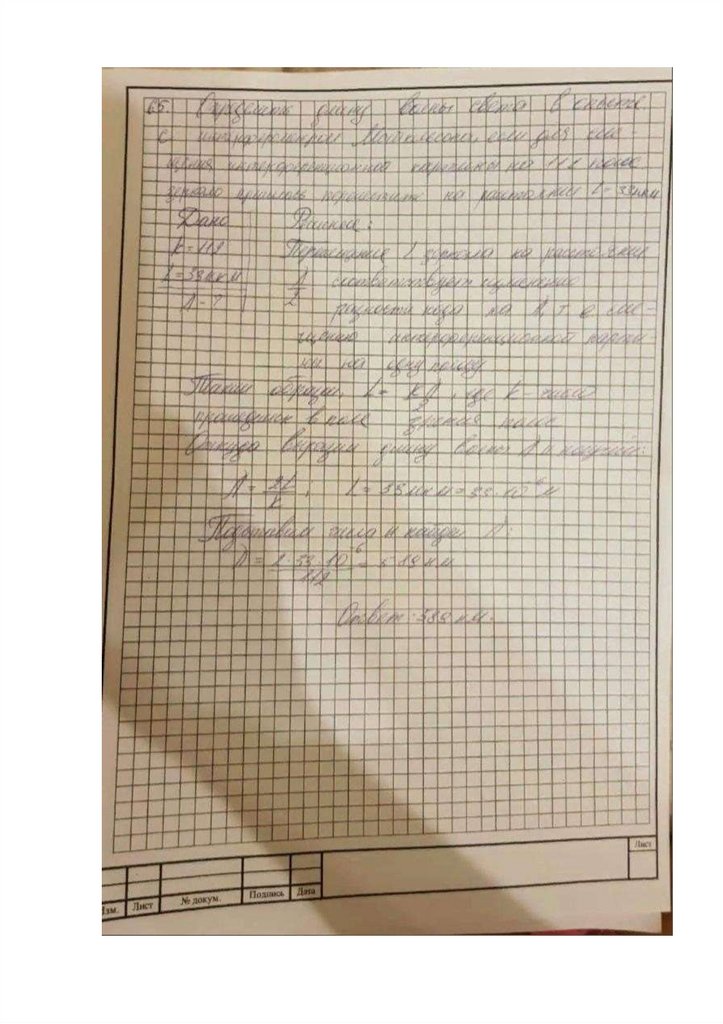 65. Определить длину волны света в опыте
с интерферометром Майкельсона, если для сме-
щения интерференционной картины на 112 полос
зеркало пришлось переместить на расстояние L = 33 мкм
Дано Решение:
k = 112 Перемещение зеркала на расстояние
L = 33 мкм λ/2 соответствует изменению
λ - ? разности хода на λ, т. е. сме-
щению интерференционной карти-
ны на одну полосу
Таким образом, L = kλ/2, где k - число
прошедших в поле зрения полос
Откуда выразим длину волны λ и получим:
λ = 2L/k; L = 33 мкм = 33·10⁻⁶ м
Подставим числа и найдем λ:
λ = 2·33·10⁻⁶/112 = 589 нм
Ответ: 589 нм.
Лист
Изм. Лист № докум. Подпись Дата